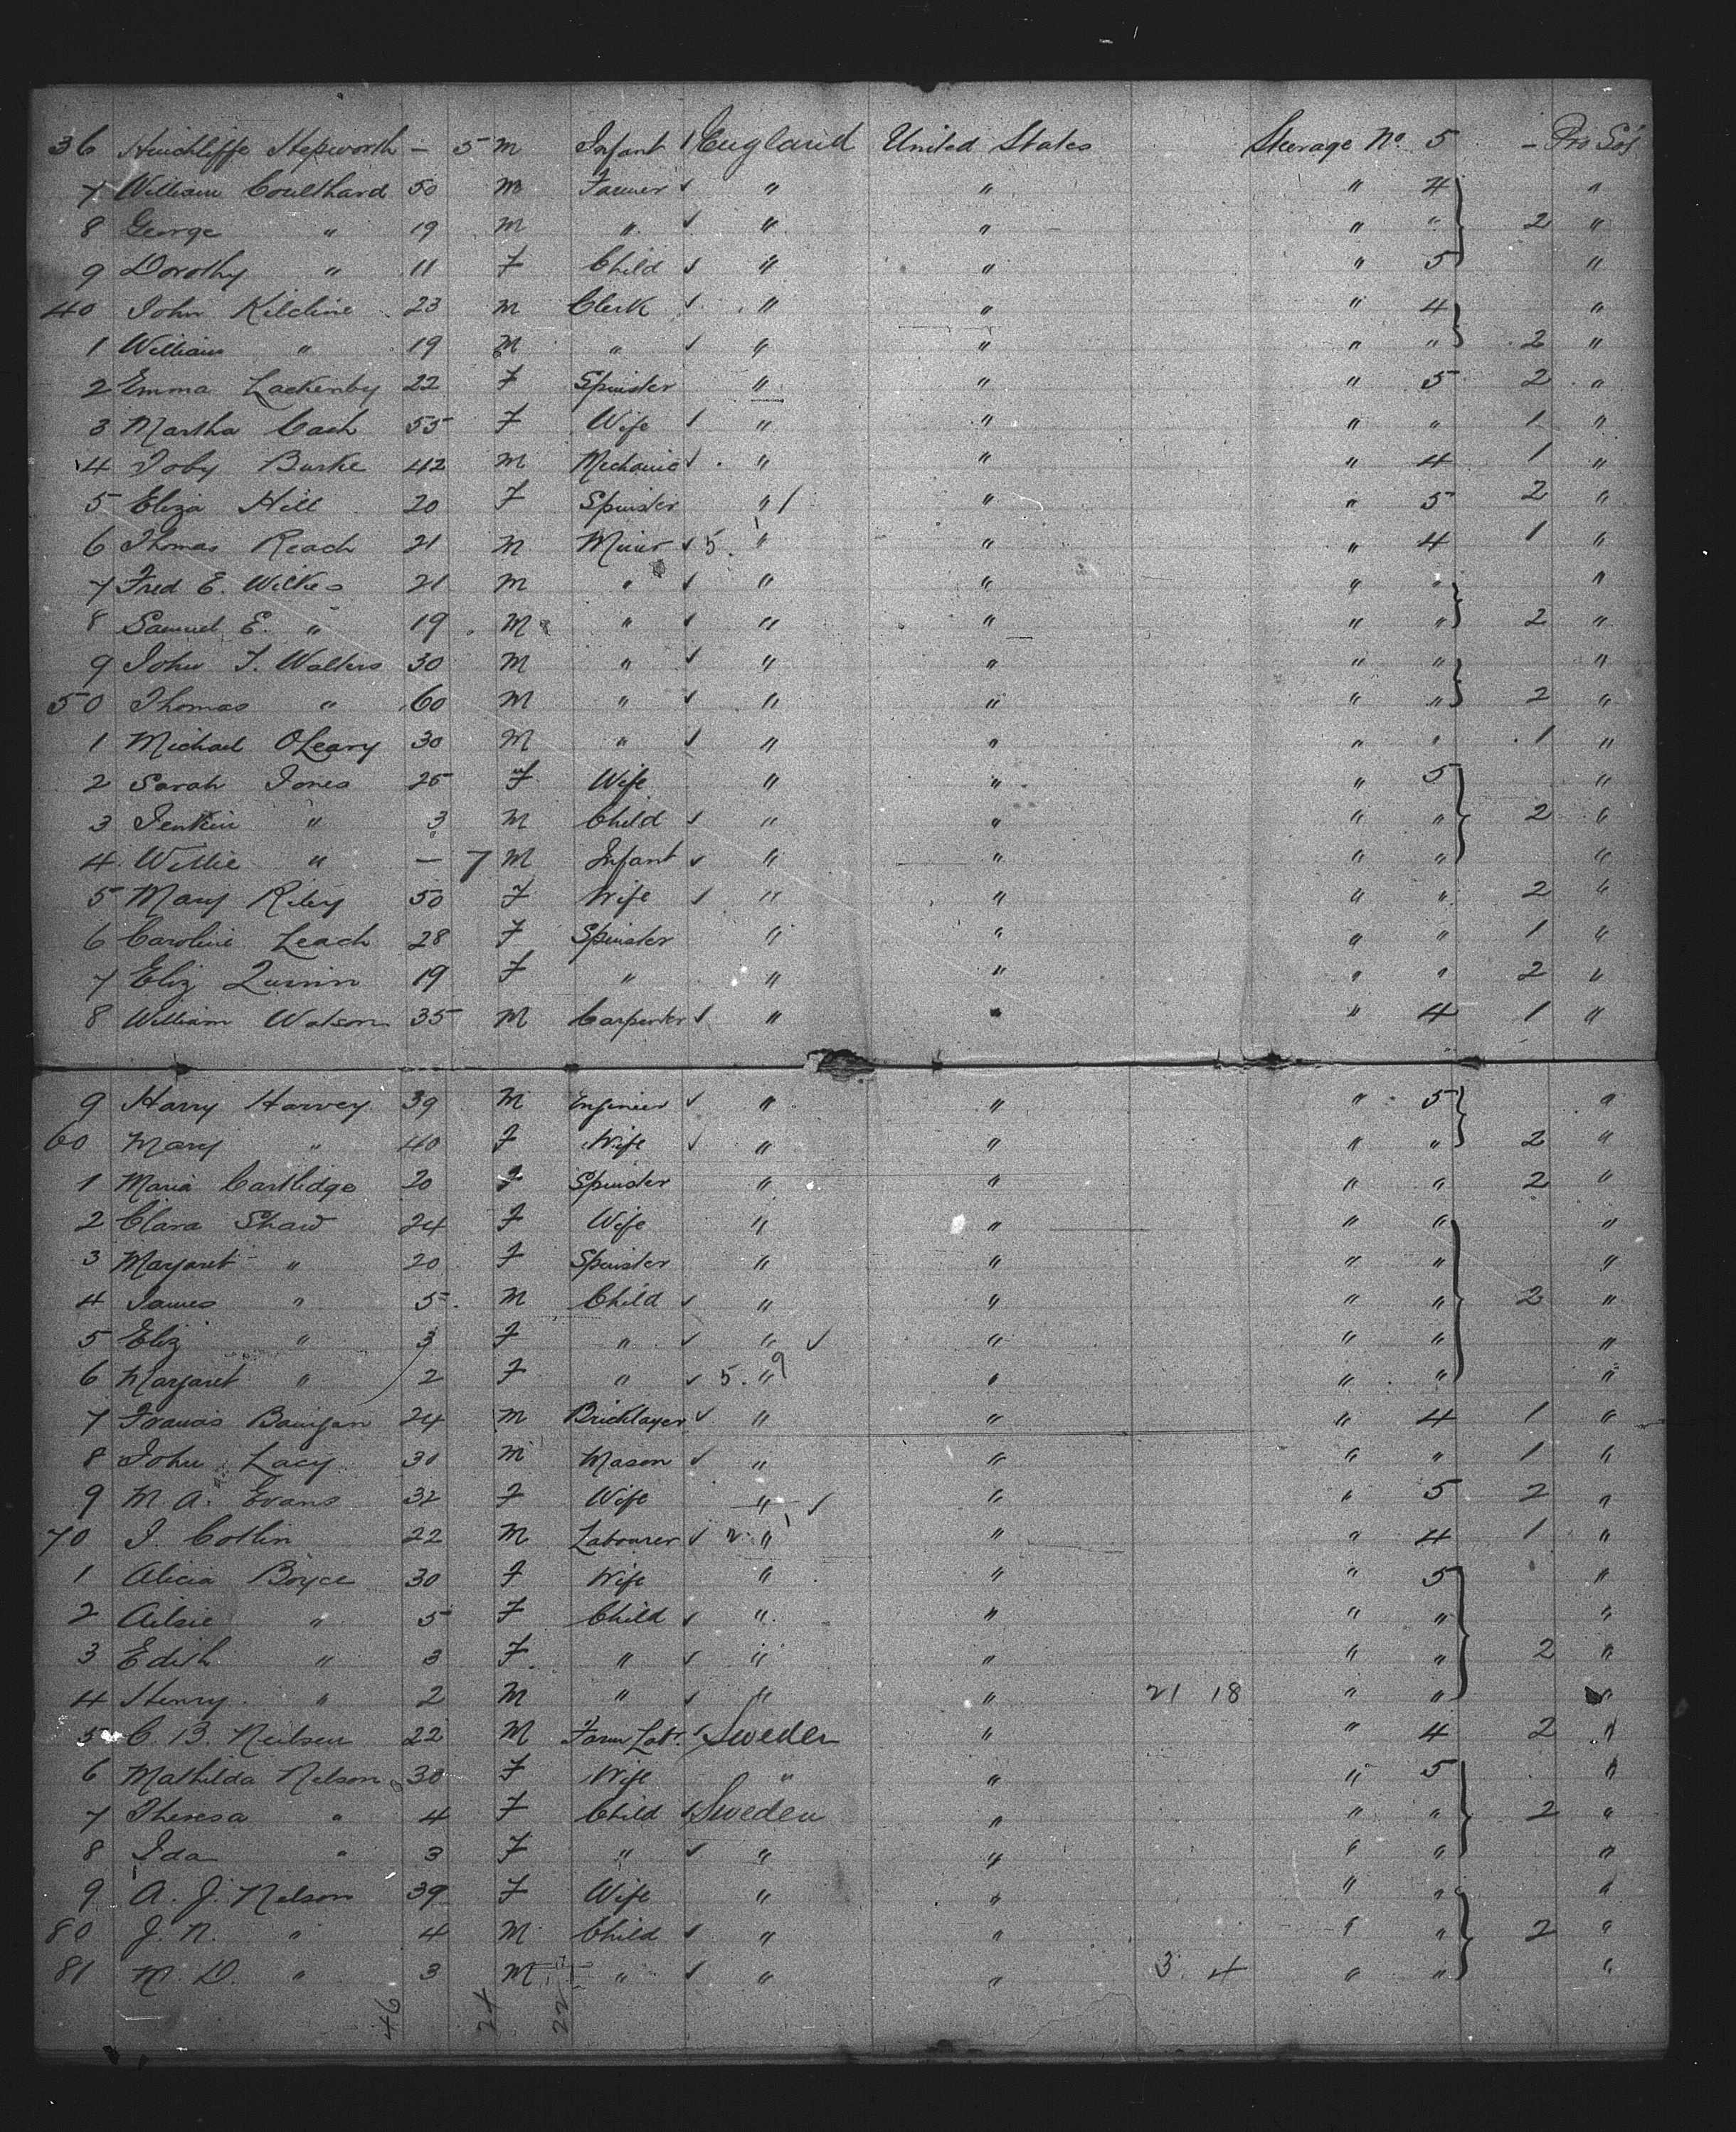 36 Hinchliffe Hepworth — 5 M Infant / England United States Steerage No 5 – Pro Soj
7 William Coulthard 50 M Farmer ✓ " " " 4 "
8 George " 19 M " ✓ " " " " 2 "
9 Dorothy " 11 F Child ✓ " " " 5 "
40 John Kilcline 23 M Clerk ✓ " " " 4 "
1 William " 19 M " ✓ " " " " 2 "
2 Emma Lackenby 22 F Spinster " " " 5 2 "
3 Martha Cash 55 F Wife ✓ " " " " 1 "
4 Toby Burke 42 M Mechanic ✓ " " " 4 1 "
5 Eliza Hill 20 F Spinster " / " " 5 2 "
6 Thomas Reach 21 M Miner ✓ 5. " " " 4 1 "
7 Fred E. Wilkes 21 M " ✓ " " " " "
8 Samuel E. " 19 M " ✓ " " " " 2 "
9 John T. Walters 30 M " ✓ " " " " "
50 Thomas " 60 M " ✓ " " " " 2 "
1 Michael O'Leary 30 M " ✓ " " " " 1 "
2 Sarah Jones 25 F Wife " " " 5 "
3 Jenkin " 3 M Child ✓ " " " " 2 "
4 Willie " — 7 M Infant ✓ " " " " "
5 Mary Riley 50 F Wife ✓ " " " " 2 "
6 Caroline Leach 28 F Spinster " " " " 1 "
7 Eliz Quinn 19 F " " " " " 2 "
8 William Watson 35 M Carpenter ✓ " " " 4 1 "
9 Harry Harvey 39 M Engineer ✓ " " " 5 "
60 Mary " 40 F Wife ✓ " " " " 2 "
1 Maria Cartlidge 20 F Spinster " " " " 2 "
2 Clara Shaw 24 F Wife " " " " "
3 Margaret " 20 F Spinster " " " " "
4 James " 5 M Child ✓ " " " " 2 "
5 Eliz " 3 F " ✓ " ✓ " " " "
6 Margaret " 2 F " ✓ 5. " 9 " " " "
7 Francis 24 M Bricklayer ✓ " " " 4 1 "
8 John Lacy 30 M Mason ✓ " " " " 1 "
9 M. A. Evans 32 F Wife " ✓ " " 5 2 "
70 J. Cotlin 22 M Labourer ✓ 2. " " " 4 1 "
1 Alicia Boyce 30 F Wife " " " 5 "
2 Ailsie " 5 F Child ✓ " " " " "
3 Edith " 3 F " ✓ " " " " 2 "
4 Henry " 2 M " ✓ " " 21 18 " " "
5 C. B. Neilsen 22 M Farm Labr. ✓ Sweden " " 4 2 "
6 Mathilda Nelson 30 F Wife " " " 5 "
7 Theresa " 4 F Child ✓ Sweden " " " 2 "
8 Ida " 3 F " ✓ " " " " "
9 A. J. Nelson 39 F Wife " " " " "
80 J. N. " 4 M Child ✓ " " " " 2 "
81 N. D. " 3 M " ✓ " " 3. 4 " " "
46 24 22